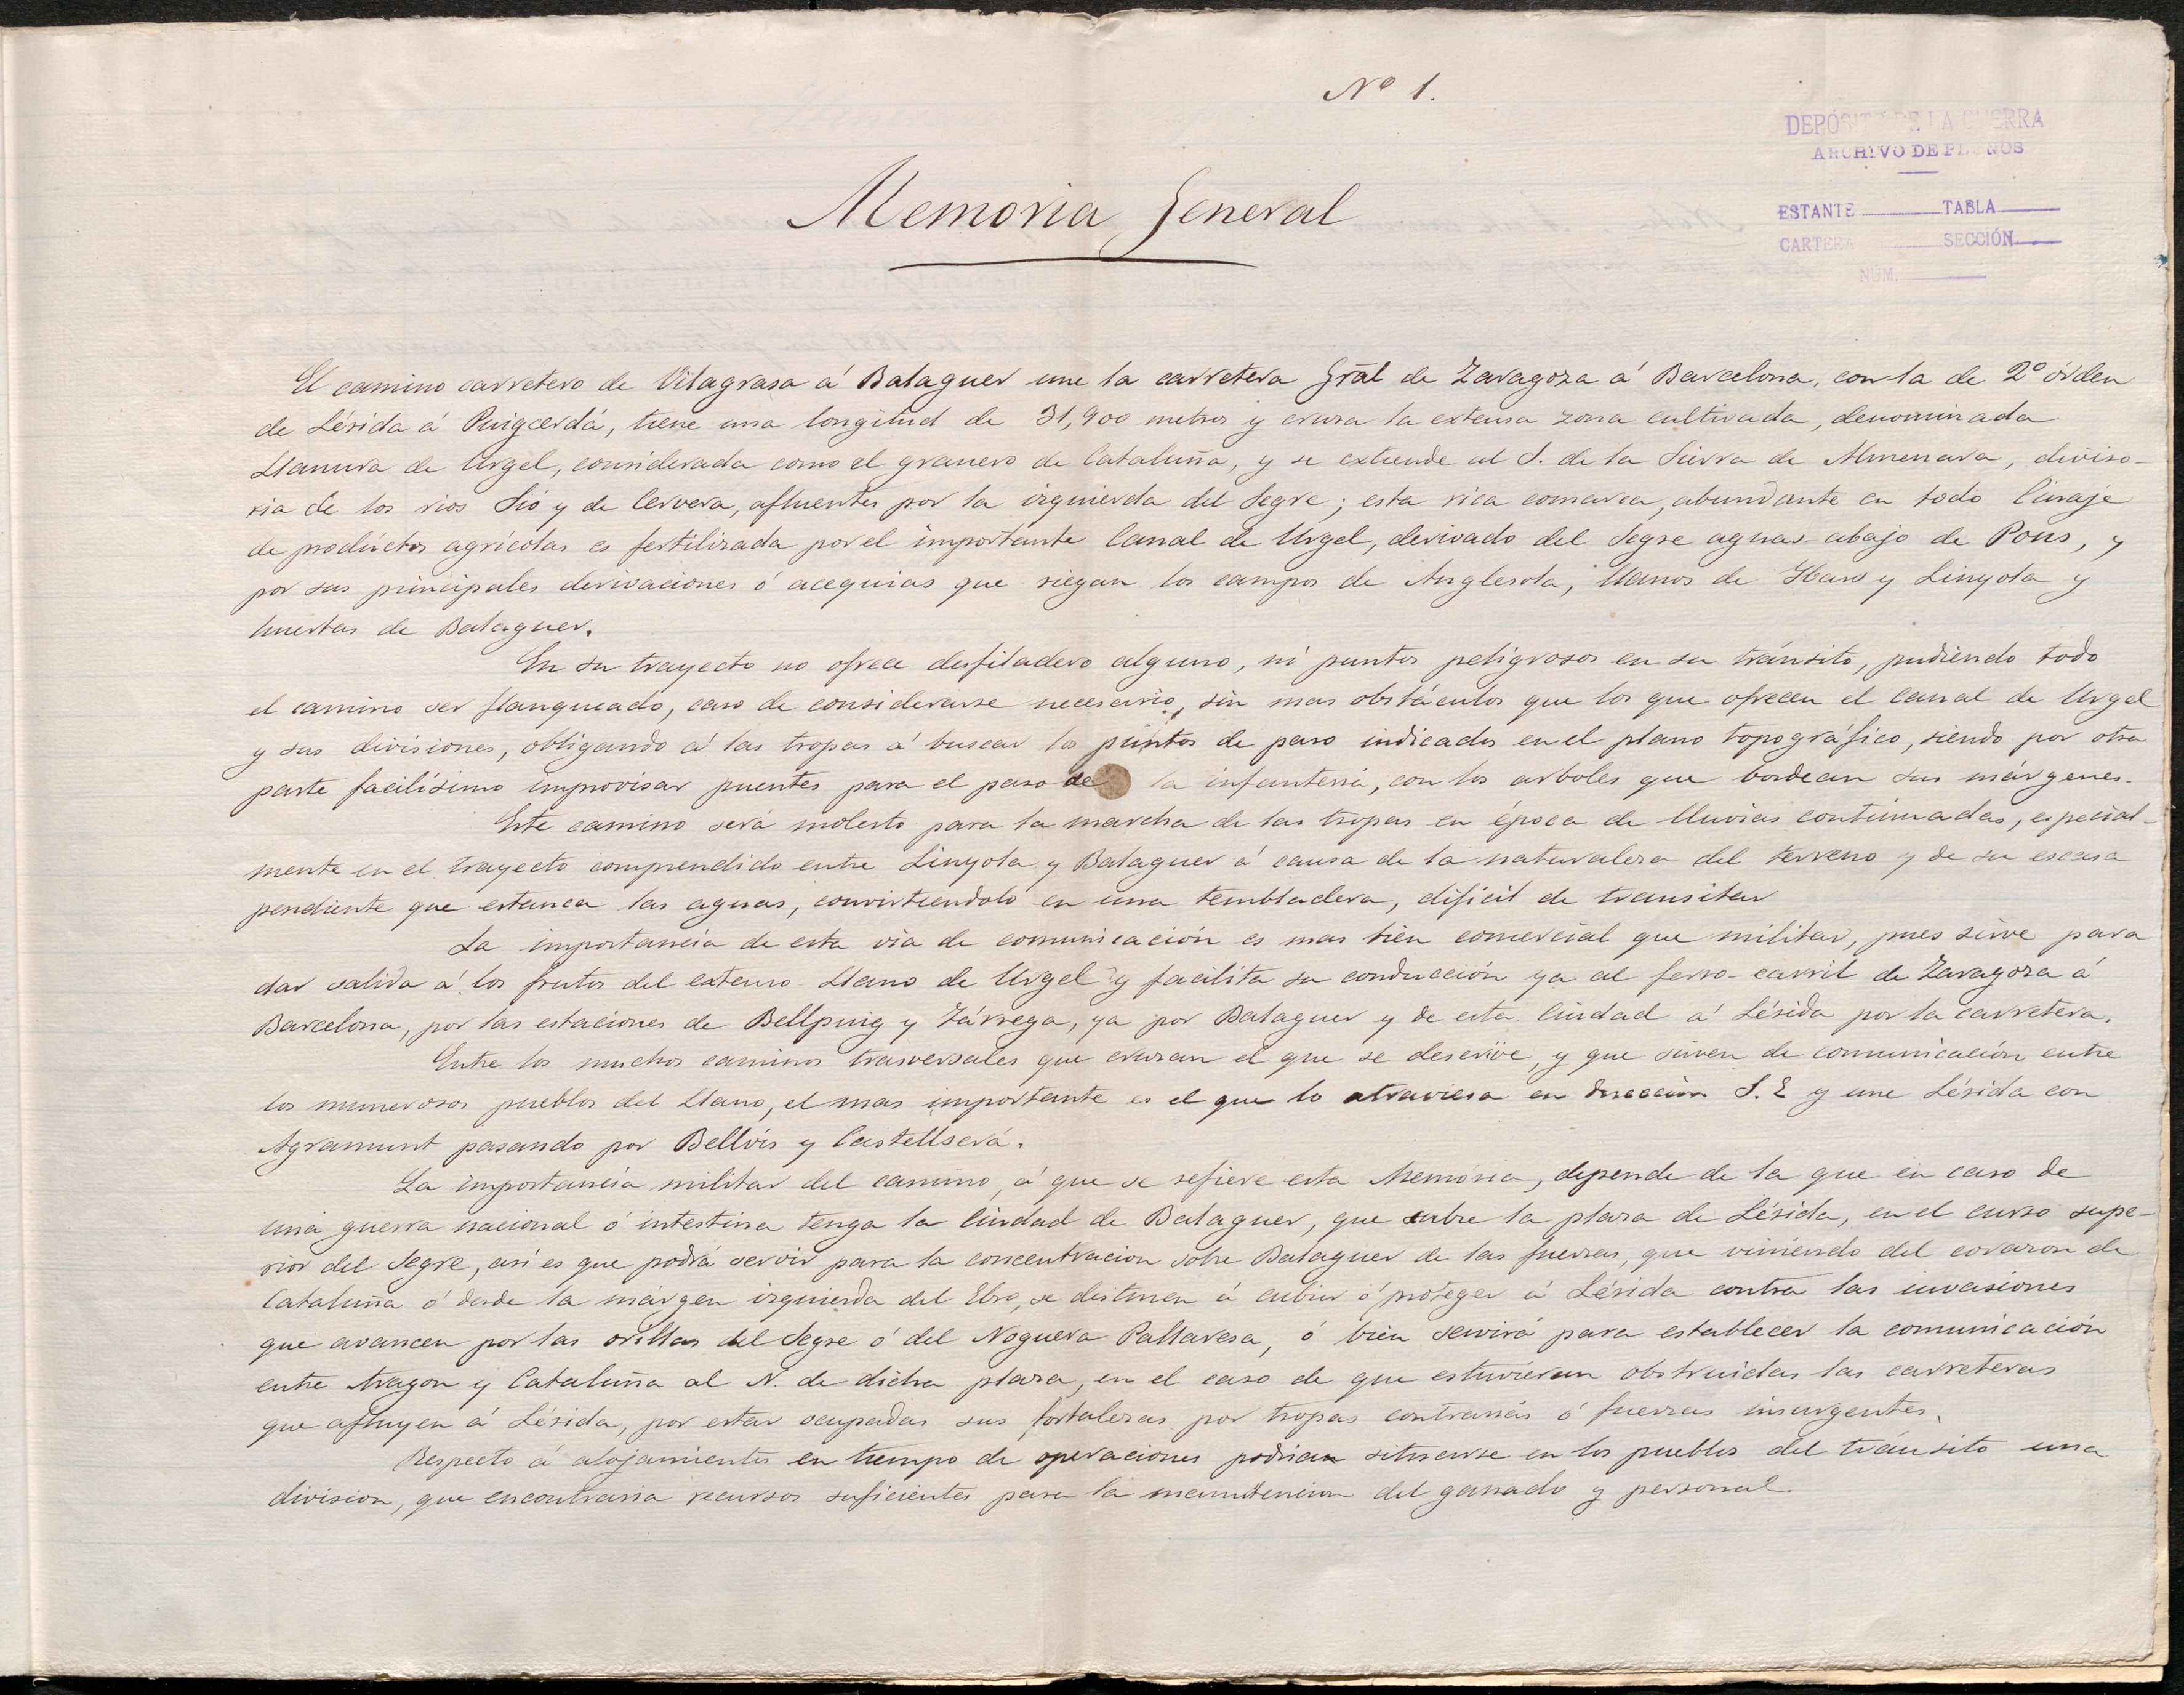 Nº 1.
DEPÓSITO DE LA GUERRA
ARCHIVO DE PLANOS
ESTANTE TABLA
CARTERA SECCIÓN
NÚM.
Memoria General
El camino carretero de Vilagrasa á Balaguer une la carretera Grāl de Zaragoza á Barcelona, con la de 2º órden
de Lérida á Puigcerdá, tiene una longitud de 31,900 metros y cruza la extensa zona cultivada, denominada
Llanura de Urgel, considerada como el granero de Cataluña, y se extiende al S. de la Sierra de Almenara, diviso-
ria de los rios Sió y de Cervera, afluentes por la izquierda del Segre; esta rica comarca, abundante en todo linaje
de productos agrícolas es fertilizada por el importante Canal de Urgel, derivado del Segre aguas-abajo de Pons, y
por sus principales derivaciones ó acequias que riegan los campos de Anglesola, llanos de y Linyola y
huertas de Balaguer.
En su trayecto no ofrece desfiladero alguno, ni puntos peligrosos en su tránsito, pudiendo todo
el camino ser flanqueado, caso de considerarse necesario, sin mas obstáculos que los que ofrecen el canal de Urgel
y sus divisiones, obligando á las tropas á buscar los puntos de paso indicados en el plano topográfico, siendo por otra
parte facilísimo improvisar puentes para el paso de la infanteria, con los arboles que bordean sus márgenes.
Este camino será molesto para la marcha de las tropas en época de lluvias continuadas, especial-
mente en el trayecto comprendido entre Linyola y Balaguer á causa de la naturaleza del terreno y de su escasa
pendiente que estanca las aguas, convirtiendolo en una tembladera, dificil de transitar
La importancia de esta via de comunicación es mas bien comercial que militar, pues sirve para
dar salida á los frutos del extenso Llano de Urgel y facilita su conducción ya al ferro-carril de Zaragoza á
Barcelona, por las estaciones de Bellpuig y Tárrega, ya por Balaguer y de esta Ciudad á Lérida por la carretera.
Entre los muchos caminos trasversales que cruzan el que se describe, y que sirven de comunicación entre
los numerosos pueblos del Llano, el mas importante es el que lo atraviesa en dirección S.E y une Lérida con
Agramunt pasando por Bellvis y Castellserá.
La importancia militar del camino, á que se refiere esta Memoria, depende de la que en caso de
una guerra nacional ó intestina tenga la Ciudad de Balaguer, que cubre la plaza de Lérida, en el curso supe-
rior del Segre, asi es que podrá servir para la concentracion sobre Balaguer de las fuerzas, que viniendo del corazon de
Cataluña ó desde la márgen izquierda del Ebro, se destinen á cubrir ó proteger á Lérida contra las invasiones
que avancen por las orillas del Segre ó del Noguera Pallaresa, ó bien servirá para establecer la comunicación
entre Aragon y Cataluña al N. de dicha plaza, en el caso de que estuvieran obstruidas las carreteras
que afluyen á Lérida, por estar ocupadas sus fortalezas por tropas contrarias ó fuerzas insurgentes.
Respecto á alojamientos en tiempo de operaciones podrian situarse en los pueblos del tránsito una
division, que encontraria recursos suficientes para la manutencion del ganado y personal.